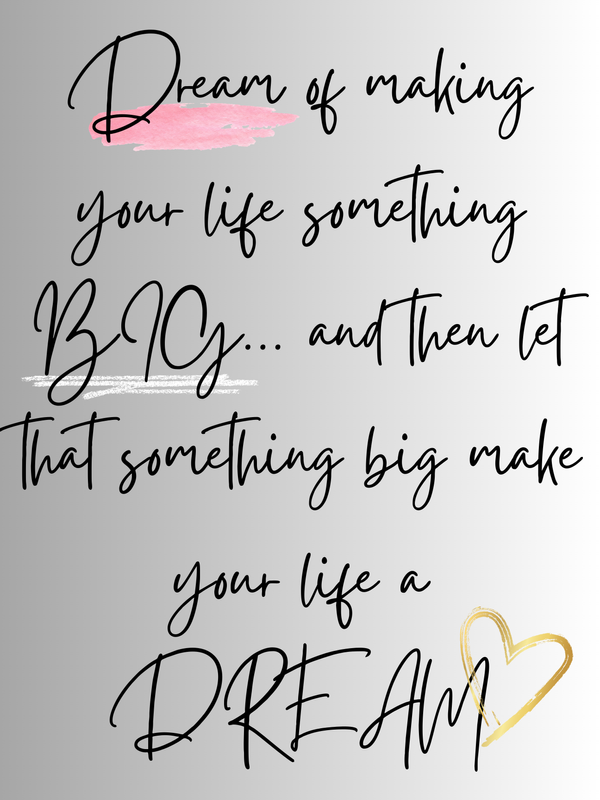 Dream of making
your life something
BIG... and then let
that something big make
your life a
DREAM